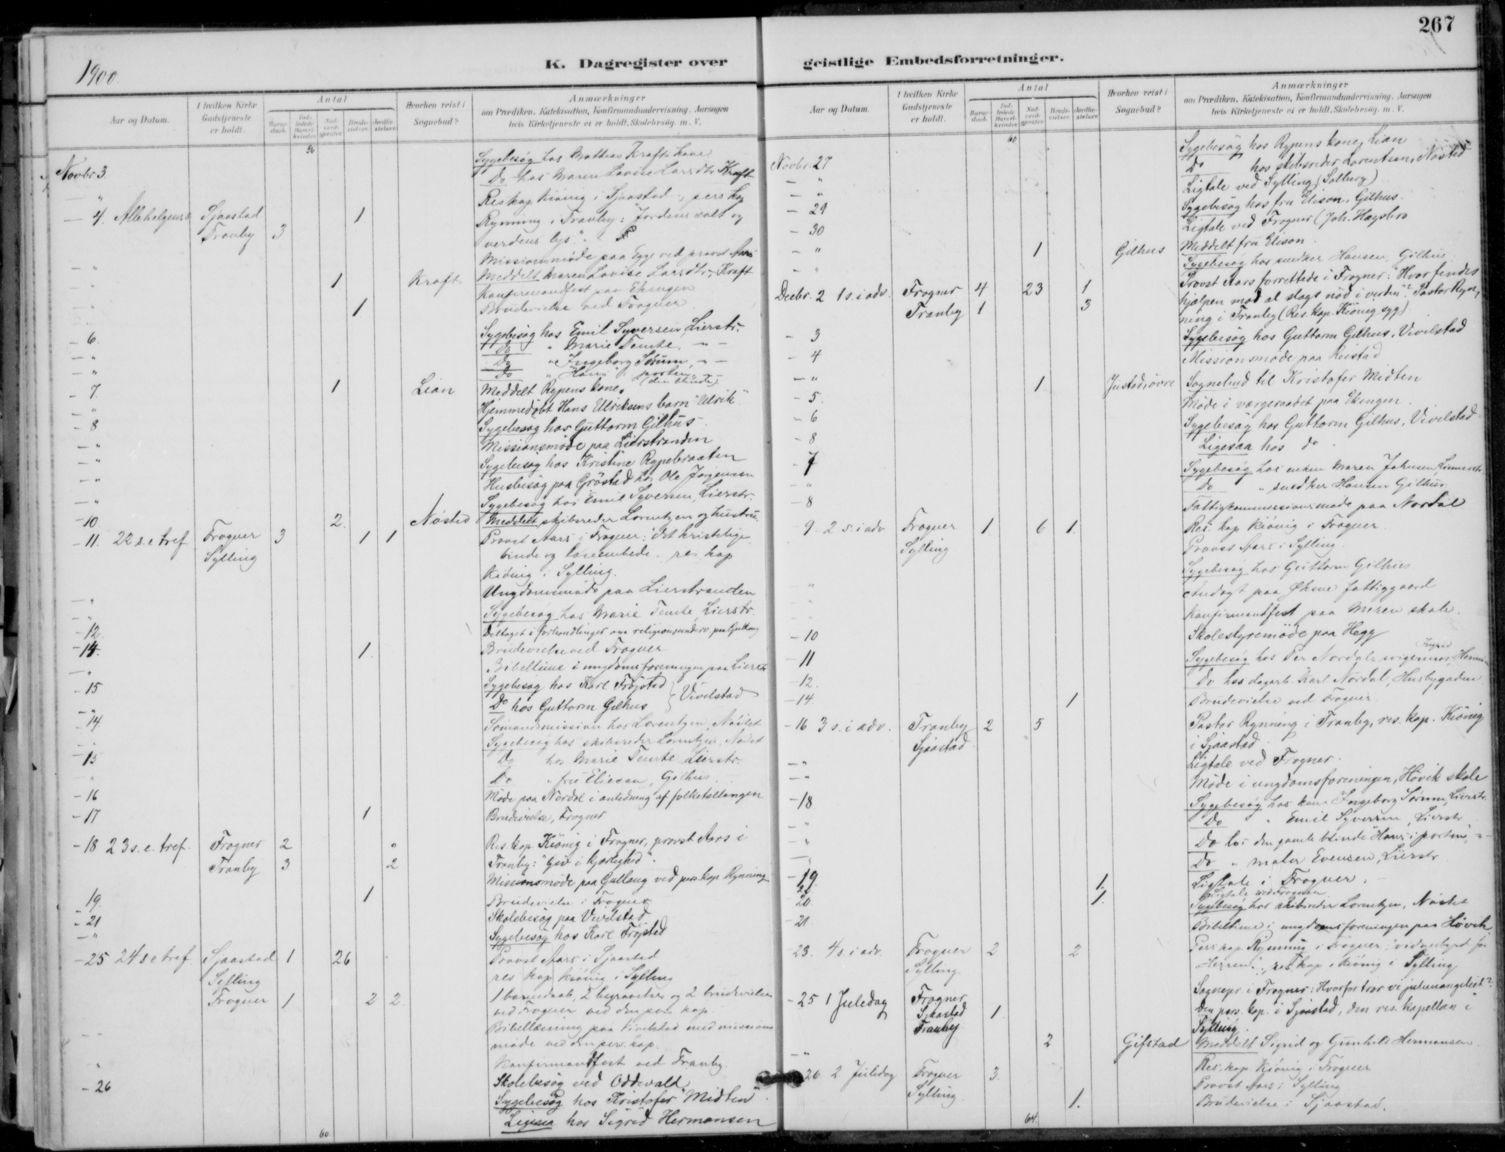 267
1900
K. Dagregister over
geistlige Embedsforretninger.
Aar og Datum.
I hvilken Kirke Gudstjeneste er holdt.
Antal
Hvorhen reist i Sognebud?
Anmærkninger
om Prædiken, Katekisation, Konfirmandundervisning, Aarsagen hvis Kirketjeneste ei er holdt, Skolebesøg, m. V.
Novbr 3
Sygebesøg hos Mathias Krafts
Do hos Maren Lovise Larsdtr Kraft
- 4 Allehelgens Sjaastad 1 Res. kap Kiönig i Sjaastad, pers. kap
Tranby 3 Rynning i Tranby: "Jordens salt og
verdens lys".
1 Kraft Meddelt Maren Lovise Larsdtr Kraft
Konfirmandfest paa Ekengen
1 Brudevielse ved Frogner
- 6. Sygebesøg hos Emil Syversen Lierstr.
Do " Marie Temte " "
Do " Ingeborg Sörum " "
Do " Hans i porten " (den blinde)
- 7 1 Lian Meddelt Rypens kone,
Hjemmedöbt Hans Ulriksens barn "Ulrik"
- 8 Sygebesøg hos Guttorm Gilhus
Missionsmöde paa Lierstranden
Sygebesøg hos Kristine Rypebraaten
Husbesøg paa Gröstad hos Ole Jörgensen
Sygebesøg hos Emil Syversen, Lierstr.
- 10 2. Nösted Meddelt skibsreder Lorentzen og hustru
- 11. 22 s. e. tref. Frogner 3 1 1 Provst Aars i Frogner: "Det kristelige
Sylling binde og löseembede. res. kap
Kiönig i Sylling.
Ungdomsmöde paa Lierstranden
Sygebesøg hos Marie Temte, Lierstr.
- 12 Deltaget i forhandlinger om religionsunderv. paa Gullaug
- 14. 1. Brudevielse ved Frogner
Bibeltime i ungdomsforeningen paa Lierstr.
- 15 Sygebesøg hos Karl Fröjsted } Vivelstad
Do hos Guttorm Gilhus
- 14 Sömandsmission hos Lorentzen, Nöstet
Sygebesøg hos skibsreder Lorentzen, Nöstet
- 15 Do hos Marie Temte Lierstr.
Do " fru Eliesen, Gilhus
- 16 Möde paa Nordal i anledning af folketællingen
- 17 1 Brudevielse, Frogner
- 18 23 s. e. tref. Frogner 2 Res. kap. Kiönig i Frogner, provst Aars i
Tranby 3 2 Tranby: "Giv i kjærlighed".
Missionsmöde paa Gullaug ved pers. kap. Rynning
- 19. 1 Brudevielse i Frogner
- 21 Skolebesøg paa Vivelstad
Sygebesøg hos Karl Fröjsted
- 25 24 s. e. tref. Sjaastad 1 26 Provst Aars i Sjaastad
Sylling res. kap. Kiönig i Sylling
Frogner 1 2 2 1 barnedaab, 2 begravelser og 2 brudevielser
ved Frogner ved den pers. kap.
Bibellæsning paa Vivelstad med missions
möde ved den pers. kap.
Konfirmantfest ved Tranby
- 26 Skolebesøg ved Oddevald
Sygebesøg hos Kristofer "Midten"
Ligesaa hos Sigrid Hermansen
60
Aar og Datum.
I hvilken Kirke Gudstjeneste er holdt.
Antal
Hvorhen reist i Sognebud?
Anmærkninger
om Prædiken, Katekisation, Konfirmandundervisning, Aarsagen hvis Kirketjeneste ei er holdt, Skolebesøg, m. V.
60
Novbr 27 Sygebesøg hos Rypens kone, Lian
Do hos skibsreder Lorentzen, Nösted
Ligtale ved Sylling (Solberg)
- 29 Sygebesøg hos fru Elieson, Gilhus.
- 30 Ligtale ved Frogner (Joh. Hægsbro
1 Gilhus Meddelt fru Elieson.
Sygebesøg hos snedker Hansen, Gilhus
Decbr. 2 1 s. i adv. Frogner 4 23 1 Provst Aars forrettede i Frogner: "Hvor findes
Tranby 1 3 hjælpen mod al slags nöd i verden"? Pastor Ryn,
ning i Tranby (Res. kap. Kiönig syg)
- 3 Sygebesøg hos Guttorm Gilhus, Vivelstad
- 4 Missionsmöde paa Justad
1 Justad övre Sognebud til Kristofer Midten
- 5. Möde i værgeraadet paa Ekengen
- 6 Sygebesøg hos Guttorm Gilhus, Vivelstad
- 8 Ligesaa hos do
- 7 Sygebesøg hos enken Maren Johnsen, Linnestr.
Do " snedker Hansen Gilhus
- 8 Fattigkommissionsmöde paa Nordal
- 9. 2 s. i adv. Frogner 1 6 1. Res. kap. Kiönig i Frogner.
Sylling Provst Aars i Sylling.
Sygebesøg hos Guttorm Gilhus
Andagt paa Økne fattiggaard
Konfirmantfest paa Meren skole.
- 10 Skolestyremöde paa Hegg
- 11 Sygebesøg hos Per Nordals
- 12. Do hos dagarb. Karl Nordal, Husbygaden
- 14 1 Brudevielse ved Frogner
- 16 3 s. i adv. Tranby 2 5 Pastor Rynning i Tranby, res. kap. Kiönig
Sjaastad i Sjaastad
Ligtale ved Frogner.
Möde i ungdomsforeningen, Hövik skole
- 18 Sygebesøg hos Ingeborg Sörum, Lierstr.
Do " Emil Syversen, Lierstr
Do hos den gamle blinde "Hans i porten"
Do " maler Evensen, Lierstr.
- 19. 1. Ligtale i Frogner.
Ligtale ved Frogner
20 1. Sygebesøg hos skibsreder Lorentzen, Nöstet
- 21 Bibeltime i ungdomsforeningen paa Hövik
- 23. 4 s. i adv. Frogner 2 2 Pers. kap. Rynning i Frogner:
Sylling Herren", res. kap. Kiönig i Sylling
- 25 1 Juledag Frogner Sognepr. i Frogner: Hvorfor tror vi juleevangeliet?
Sjaastad 1 Den pers. kap. i Sjaastad, den res. kapellan i
Tranby Sylling.
2 Gifstad Meddelt Sigrid og Gunhild Hermansen.
- 26. 2 Juledag Frogner 3. Res. kap. Kiönig i Frogner
Sylling Provst Aars i Sylling
1. Brudevielse i Sjaastad.
64